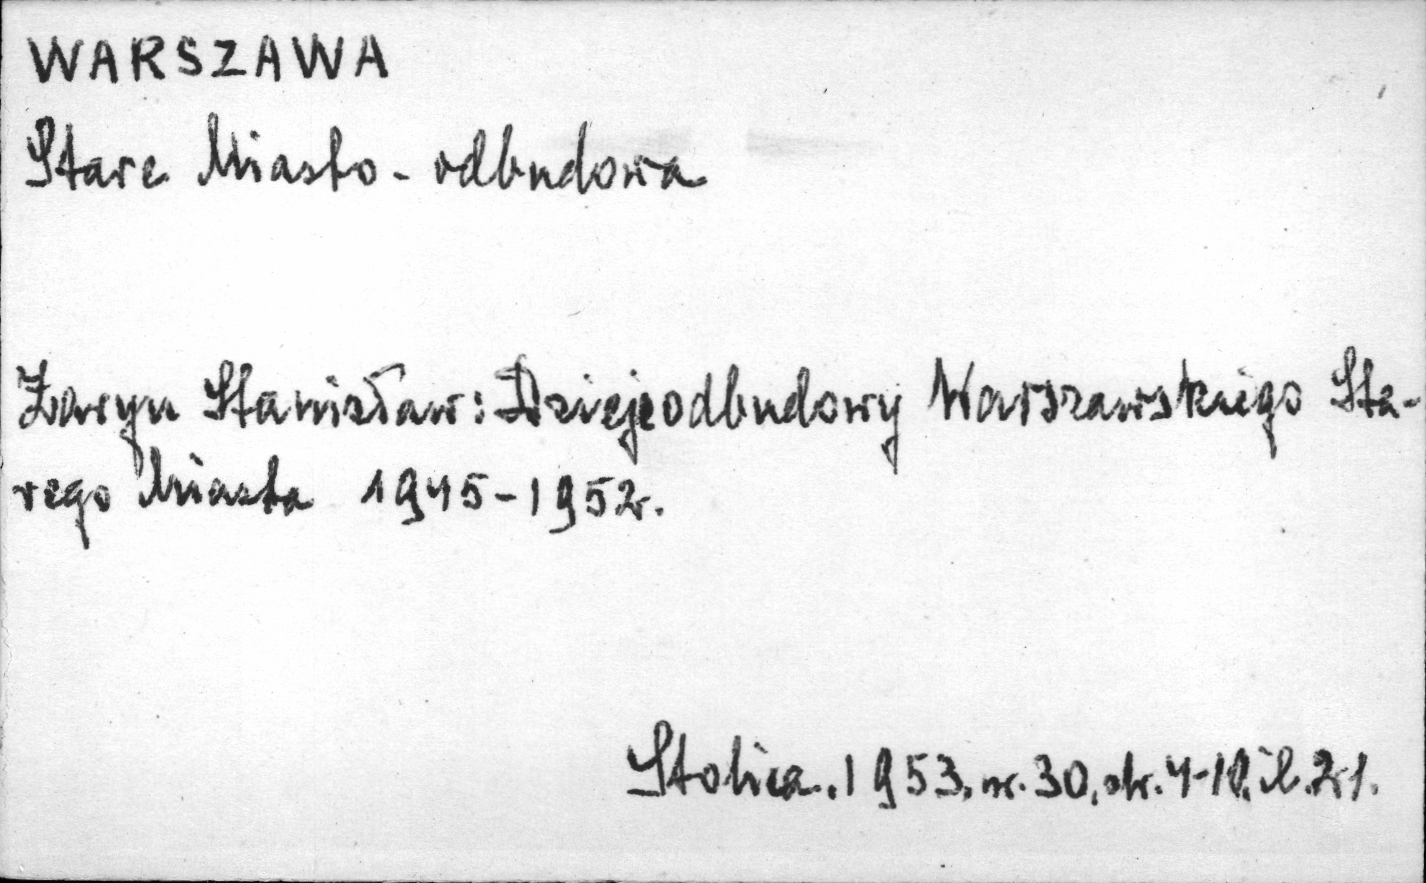 WARSZAWA
Stare Miasto - odbudowa
Żaryn Stanisław: Dzieje odbudowy Warszawskiego Sta-
rego Miasta 1945-1952r.
Stolica. 1953. nr. 30, str. 4-10, il. 21.